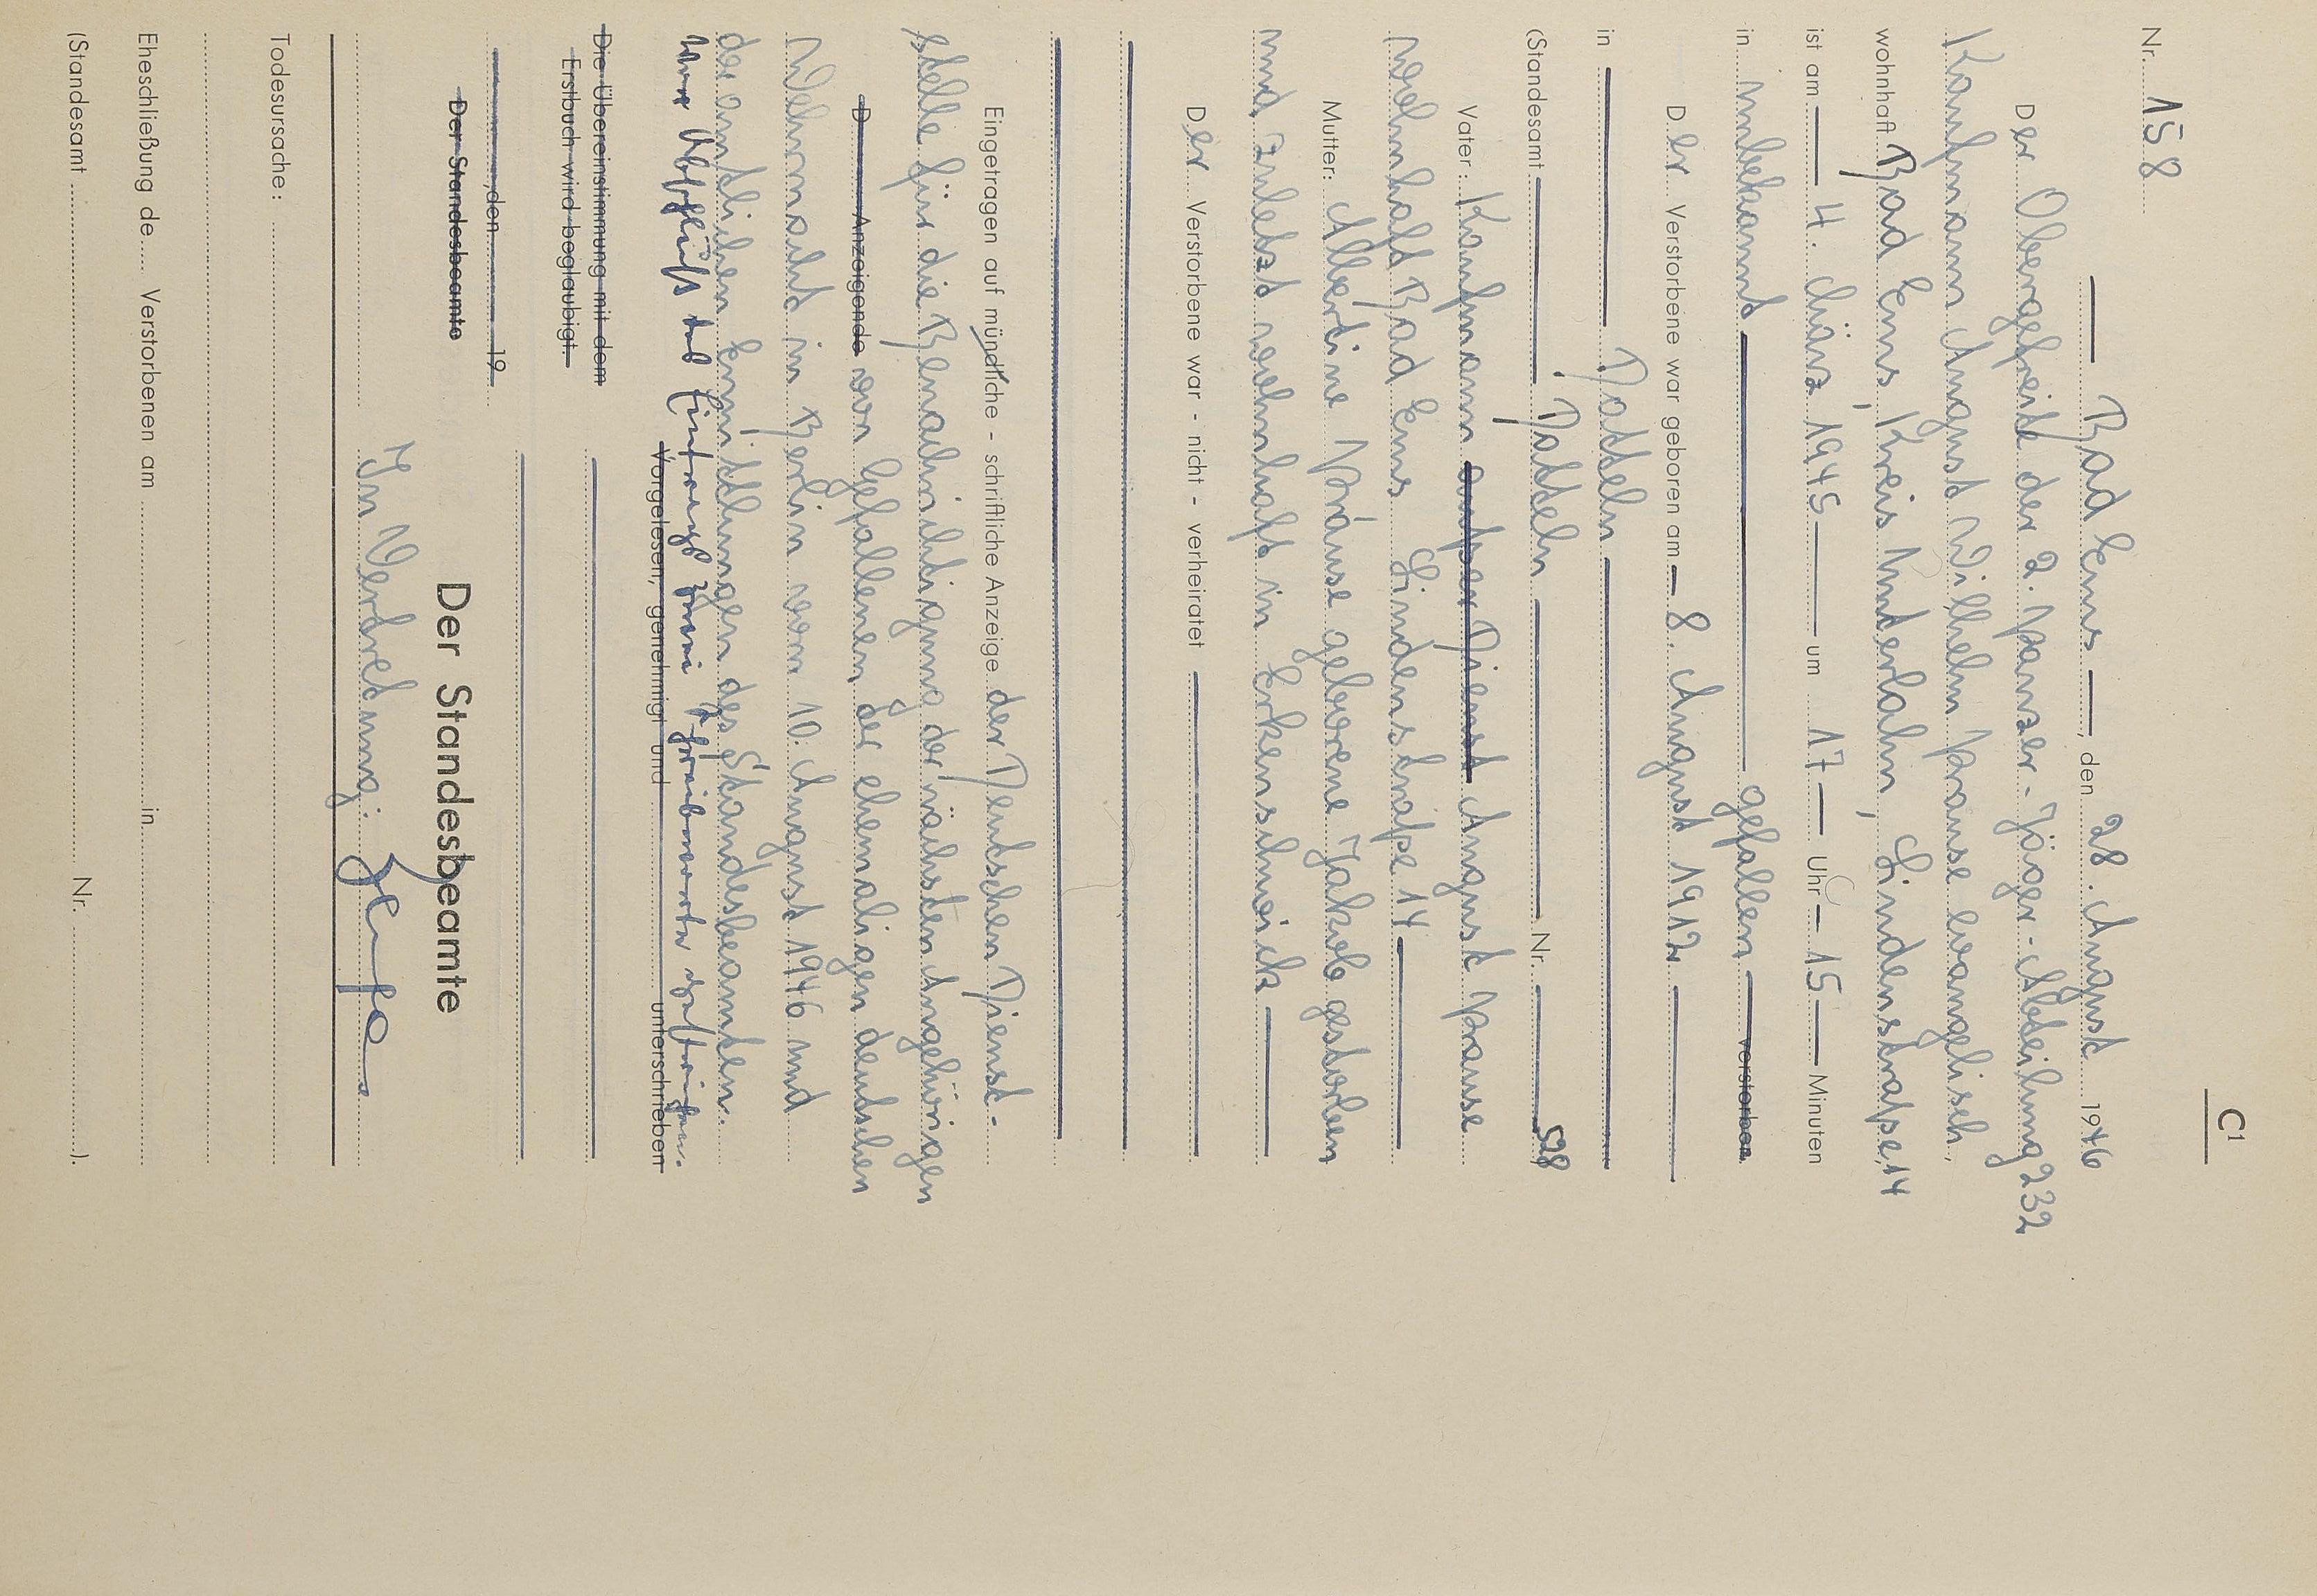 C1
Nr. 158
— Bad Ems —, den 28. August 1946
Der Obergefreite der 2. Panzer-Jäger-Abteilung 232
Kaufmann August Wilhelm Prause evangelisch,
wohnhaft Bad Ems, Kreis Unterlahn, Lindenstraße 14
ist am — 4. März 1945 — um 17 — Uhr — 15 — Minuten
in unbekannt — gefallen — verstorben.
Der Verstorbene war geboren am — 8. August 1912 —
in — Datteln —
(Standesamt — Datteln — Nr. — 598
Vater: Kaufmann außer Dienst August Prause
wohnhaft Bad Ems Lindenstraße 14 —
Mutter: Albertine Prause geborene Jakob gestorben
und zuletzt wohnhaft in Erkenschwick —
Der Verstorbene war - nicht - verheiratet —
Eingetragen auf mündliche - schriftliche Anzeige der Deutschen Dienst-
stelle für die Benachrichtigung der nächsten Angehörigen
D — Anzeigende von Gefallenen der ehemaligen deutschen
Wehrmacht in Berlin vom 10. August 1946 und
der amtlichen Ermittlungen des Standesbeamten.
Vor Abschluß des Eintrags zwei Schreibworte gestrichen.
Vorgelesen, genehmigt und unterschrieben
Die Übereinstimmung mit dem
Erstbuch wird beglaubigt.
, den 19
Der Standesbeamte
Der Standesbeamte
In Vertretung:
Todesursache:
Eheschließung de Verstorbenen am in
(Standesamt Nr. ).